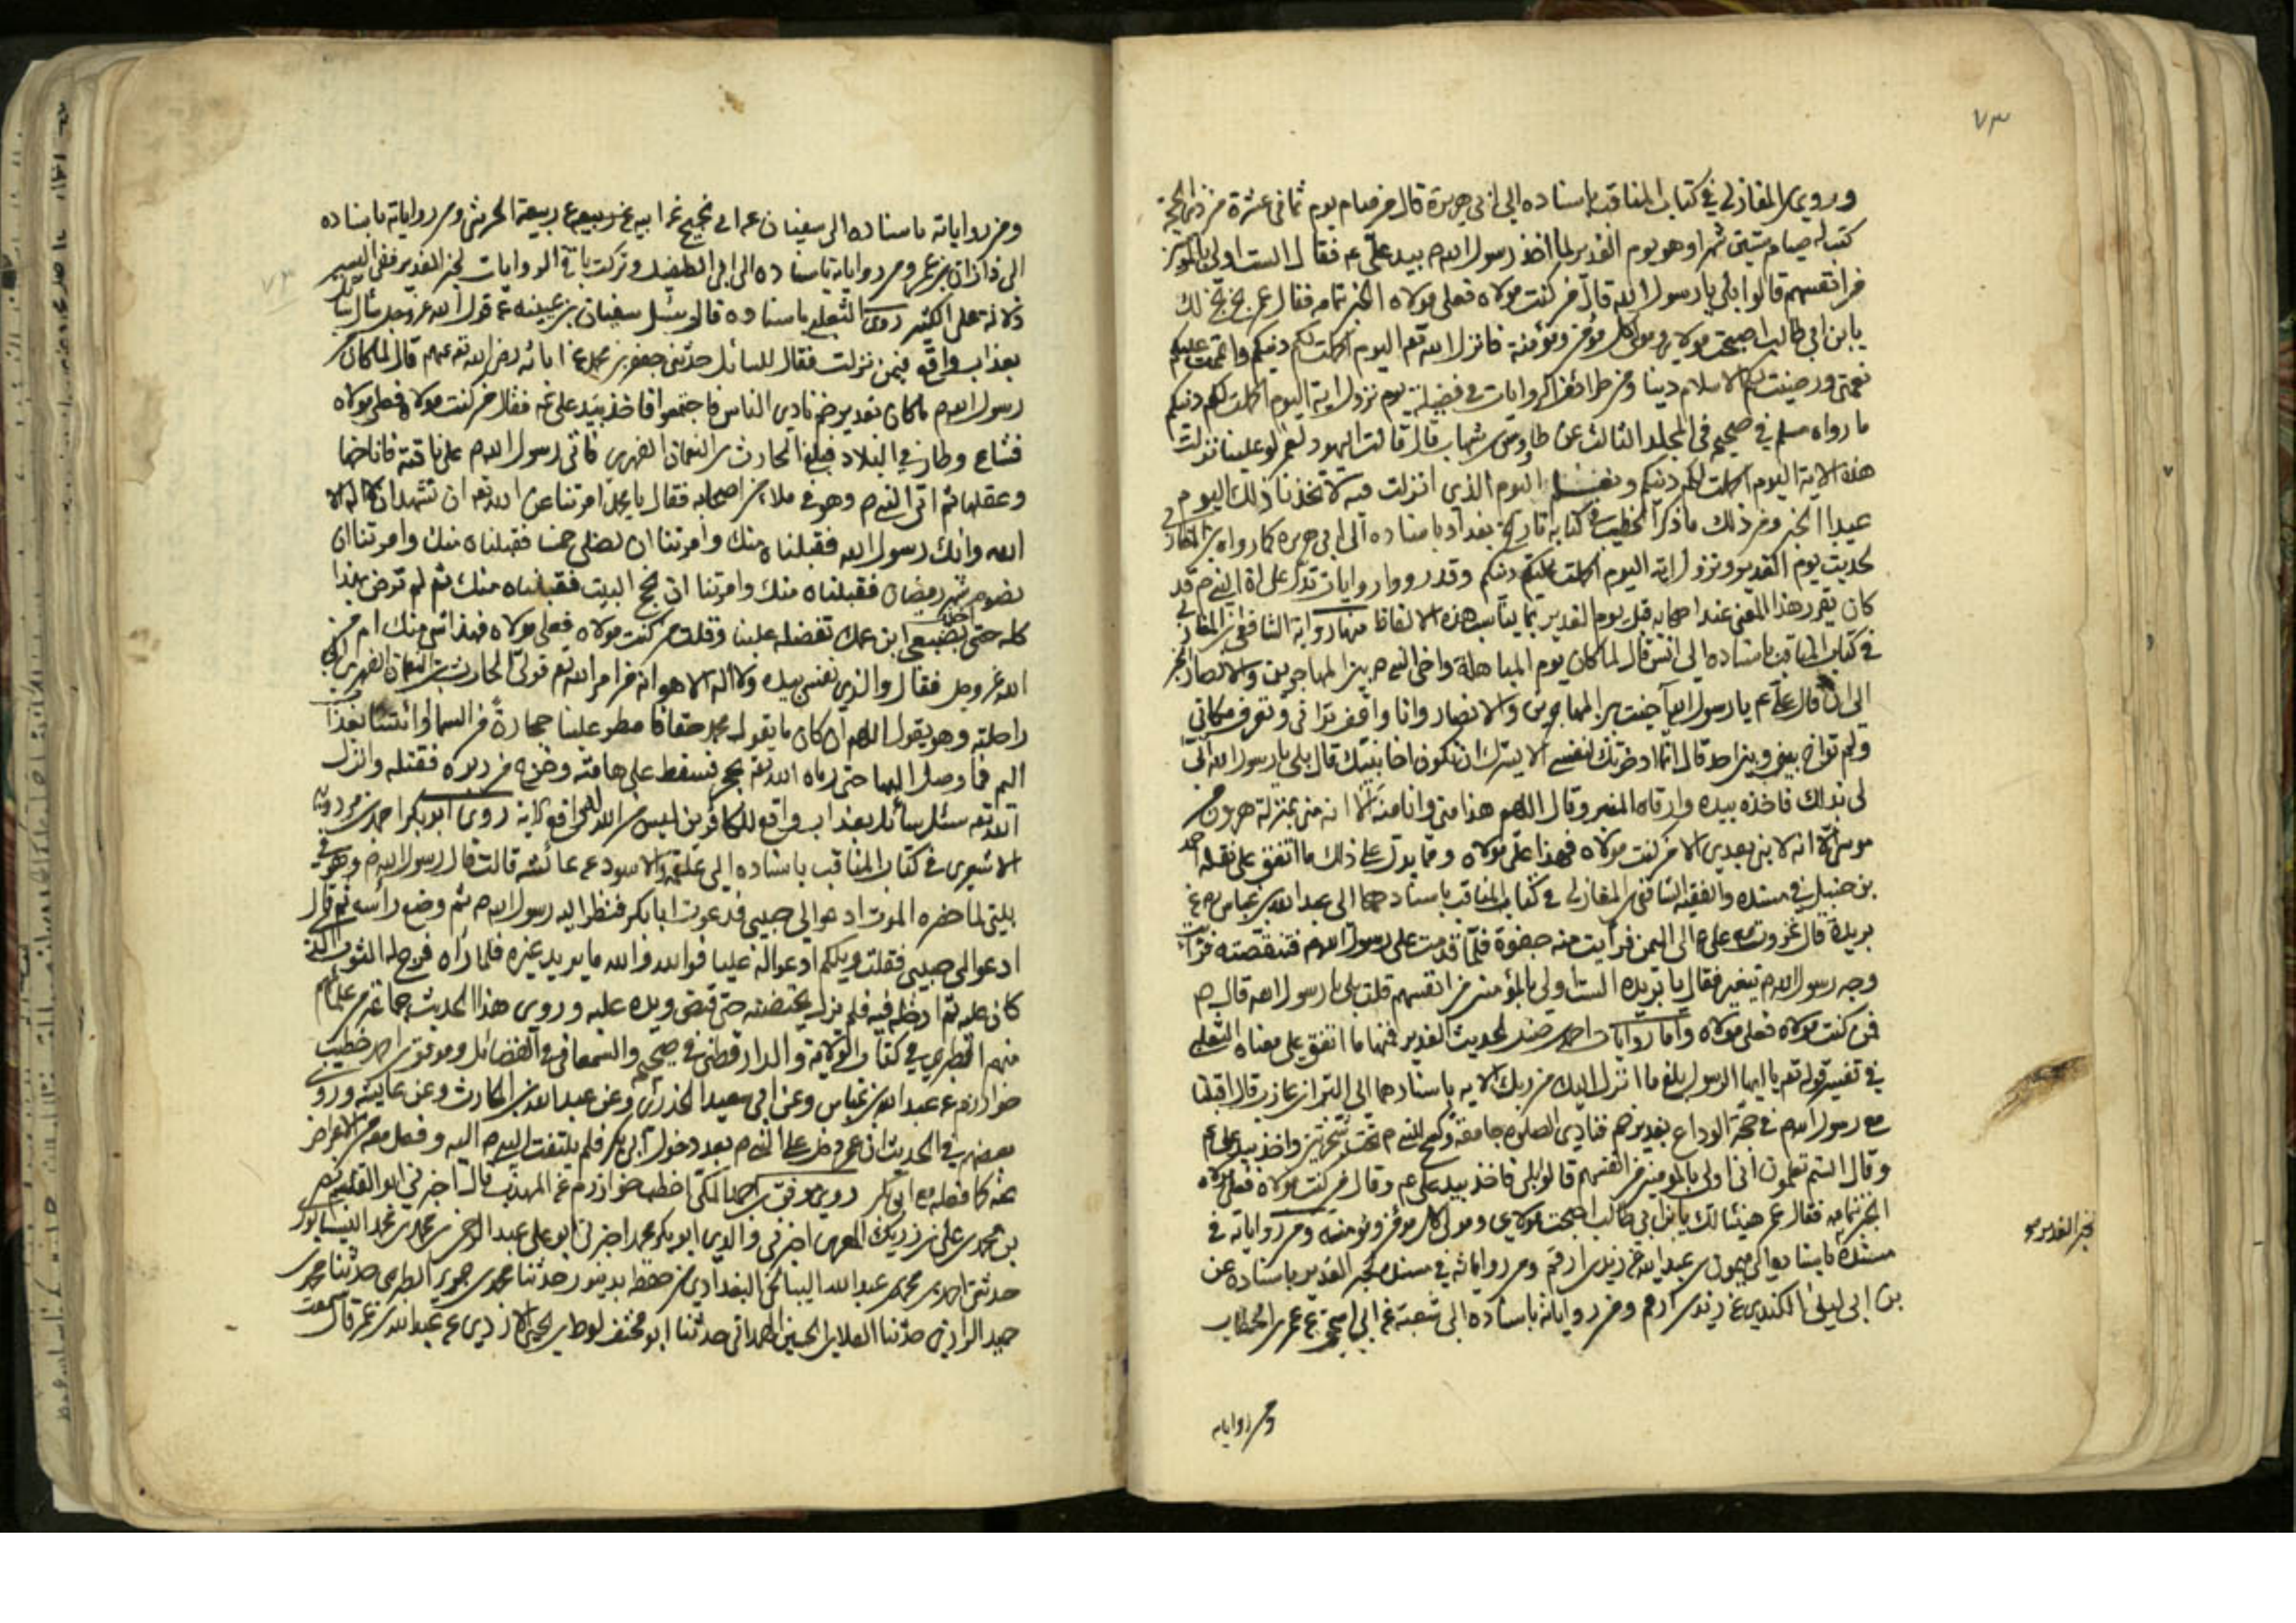 ٧٣
وروى المغازلي في كتاب المناقب باسناده الى ابي هريرة قال من صام يوم ثماني عشرة من ذي الحجة
كتب له صيام ستين شهرا وهو يوم الغدير لما اخذ رسول الله ص بيد علي ع فقال الست اولى بالمؤمنين
من انفسهم قالوا بلى يا رسول الله قال من كنت مولاه فعلي مولاه الخبر بتمامه فقال عمر بخ بخ لك
يا بن ابي طالب اصبحت مولاي ومولى كل مؤمن ومؤمنة فانزل الله تع اليوم اكملت لكم دينكم واتممت عليكم
نعمتي ورضيت لكم الاسلام دينا ومن طرائف الروايات في فضيلة يوم نزول اية اليوم اكملت لكم دينكم
ما رواه مسلم في صحيحه في المجلد الثالث عن طاوس بن شهاب قال قالت اليهود لعمر لو علينا نزلت
هذه الاية اليوم اكملت لكم دينكم ونعلم اليوم الذي انزلت فيه لاتخذنا ذلك اليوم
عيدا الخبر ومن ذلك ما ذكر الخطيب في كتابه تاريخ بغداد باسناده الى ابي هريرة كما رواه بن المغازلي
لحديث يوم الغدير ونزول اية اليوم اكملت لكم دينكم وقد رووا روايات تدل على ان النبي ص قد
كان يقرر هذا المعنى عند اصحابه قبل يوم الغدير بما يناسب هذه الالفاظ فمنها رواية الشافعي بن المغازلي
في كتاب المناقب باسناده الى انس قال لما كان يوم المباهلة واخى النبي ص بين المهاجرين والانصار الخبر
الى ان قال علي ع يا رسول الله آخيت بين المهاجرين والانصار وانا واقف تراني وتعرف مكاني
ولم تواخ بيني وبين احد قال انما ادخرتك لنفسي الا يسرك ان تكون اخا نبيك قال بلى يا رسول الله انى
لي بذلك فاخذه بيده وارقاه المنبر وقال اللهم هذا مني وانا منه الا انه مني بمنزلة هرون من
موسى الا انه لا نبي بعدي الا من كنت مولاه فهذا علي مولاه ومما يدل على ذلك ما اتفق على نقله احمد
بن حنبل في مسنده والفقيه الشافعي بن المغازلي في كتاب المناقب باسنادهما الى عبد الله بن عباس عن
بريدة قال غزوت مع علي ع الى اليمن فرأيت منه جفوة فلما قدمت على رسول الله ص فتنقصته فرأيت
وجه رسول الله ص يتغير فقال يا بريده الست اولى بالمؤمنين من انفسهم قلت بلى يا رسول الله قال ص
من كنت مولاه فعلي مولاه واما روايات احمد بن حنبل لحديث الغدير فمنها ما اتفق على معناه الثعلبي
في تفسير قوله تع يا ايها الرسول بلغ ما انزل اليك من ربك الاية باسنادهما الى البراء بن عازب قال اقبلنا
مع رسول الله ص في حجة الوداع بغدير خم فنادى الصلوة جامعة وكسح للنبي ص تحت شجرتين واخذ بيد علي ع
وقال الستم تعلمون اني اولى بالمؤمنين من انفسهم قالوا بلى فاخذ بيد علي ع وقال من كنت مولاه فعلي مولاه
الخبر بتمامه فقال عمر هنيئا لك يا بن ابي طالب اصبحت مولاي ومولى كل مؤمن ومؤمنه ومن رواياته في
مسنده باسناده الى ميمون بن عبد الله عن زيد بن ارقم ومن رواياته في مسنده لخبر الغدير باسناده عن
بن ابي ليلى الكندي عن زيد بن ارقم ومن رواياته باسناده الى شعبة عن ابي اسحق عن عمر بن الخطاب
ومن رواياته
ومن رواياته باسناده الى سفيان عن ابي نجيح عن ابيه عن ربيعة الحرشي ومن رواياته باسناده
الى زاذان بن عمر ومن رواياته باسناده الى ابي الطفيل وتركت باقي الروايات لخبر الغدير ففي اليسير
دلالة على الكثير روى الثعلبي باسناده قال سئل سفيان بن عيينه عن قول الله عز وجل سأل سائل
بعذاب واقع فيمن نزلت فقال للسائل حدثني جعفر بن محمد عن ابائه رضي الله تع عنهم قال لما كان
رسول الله ص ما كان بغدير خم نادى الناس فاجتمعوا فاخذ بيد علي ع فقال من كنت مولاه فعلي مولاه
فشاع وطار في البلاد فبلغ الحارث بن النعمان الفهري فاتى رسول الله ص على ناقته فاناخها
وعقلها ثم اتى النبي ص وهو في ملاء من اصحابه فقال يا محمد امرتنا عن الله تع ان نشهد ان لا اله الا
الله وانك رسول الله فقبلناه منك وامرتنا ان نصلي خمسا فقبلناه منك وامرتنا ان
نصوم شهر رمضان فقبلناه منك وامرتنا ان نحج البيت فقبلناه منك ثم لم ترض بهذا
كله حتى بضبعي ابن عمك تفضله علينا وقلت من كنت مولاه فعلي مولاه فهذا شيء منك ام من
الله عز وجل فقال والذي نفسي بيده ولا اله الا هو انه من امر الله تع فولى الحارث بن النعمان الفهري الى
راحلته وهو يقول اللهم ان كان ما يقوله محمد حقا فامطر علينا حجارة من السماء او ائتنا بعذاب
اليم فما وصل اليها حتى رماه الله تع بحجر فسقط على هامته وخرج من دبره فقتله وانزل
الله تع سئل سائل بعذاب واقع للكافرين ليس من الله دافع الاية روى ابو بكر احمد بن مردويه
الاشعري في كتاب المناقب باسناده الى علقمة والاسود عن عائشه قالت قال رسول الله ص وهو في
بيتي لما حضره الموت ادعوا لي حبيبي فدعوت ابا بكر فنظر اليه رسول الله ص ثم وضع رأسه ثم قال
ادعوا لي حبيبي فقلت ويلكم ادعوا له عليا فوالله فوالله ما يريد غيره فلما رآه فرج له الثوب الذي
كان عليه ثم ادخله فيه فلم يزل يحتضنه حتى قبض ويده عليه وروى هذا الحديث جماعة من علمائهم
منهم الطبري في كتاب الولاية والدارقطني في صحيحه والسمعاني في الفضائل وموفق بن احمد خطيب
خوارزم عن عبد الله بن عباس وعن ابي سعيد الخدري وعن عبد الله بن الحارث وعن عايشه وروى
بعضهم في الحديث ان عمر دخل على النبي ص بعد دخول ابي بكر فلم يلتفت النبي ص اليه وفعل معه من الاعراض
عنه كما فعله مع ابي بكر روى موفق بن احمد المكي اخطب خوارزم عن المهذب قال اخبرني ابو القسم نصر
بن محمد بن علي بن زيرك المقري اخبرني والدي ابو بكر محمد اخبرني ابو علي عبد الرحمن بن محمد بن محمد النيسابوري
حدثني احمد بن محمد بن عبد الله البنانجي البغدادي من حفظه بدينور حدثنا محمد بن جرير الطبري حدثنا محمد بن
حميد الرازي حدثنا العلا بن الحسين الهمداني حدثنا ابو مخنف لوط بن يحيى الازدي عن عبد الله بن عمر قال سمعت